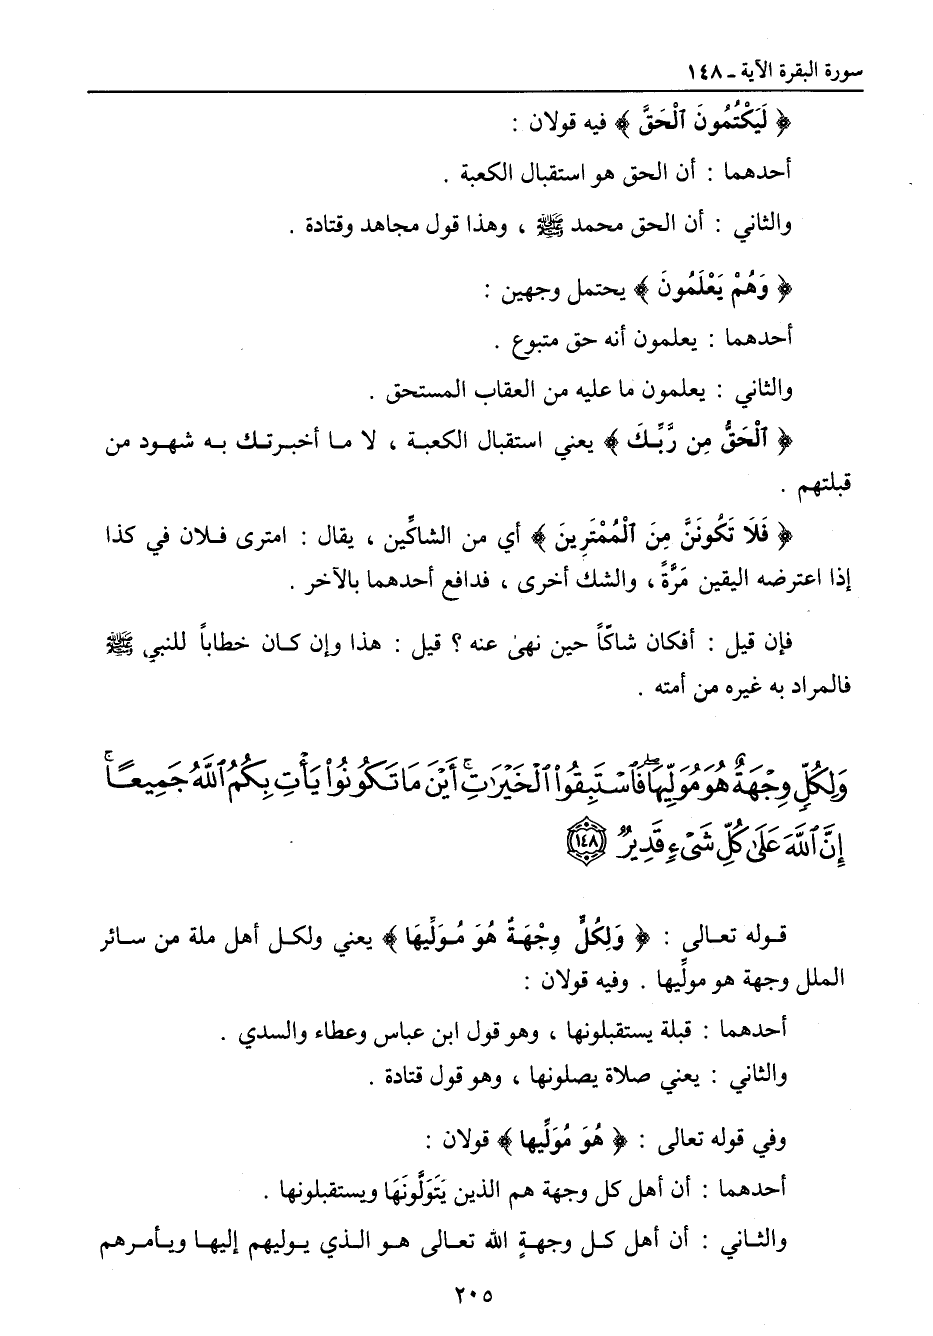 سورة البقرة الآية ـ ١٤٨
﴿ لَيَكْتُمُونَ ٱلْحَقَّ ﴾ فيه قولان :
أحدهما : أن الحق هو استقبال الكعبة .
والثاني : أن الحق محمد ﷺ ، وهذا قول مجاهد وقتادة .
﴿ وَهُمْ يَعْلَمُونَ ﴾ يحتمل وجهين :
أحدهما : يعلمون أنه حق متبوع .
والثاني : يعلمون ما عليه من العقاب المستحق .
﴿ ٱلْحَقُّ مِن رَّبِّـكَ ﴾ يعني استقبال الكعبة ، لا مـا أخبـرتـك بـه شهـود من
قبلتهم .
﴿ فَلَا تَكُونَنَّ مِنَ ٱلْمُمْتَرِينَ ﴾ أي من الشاكِّين ، يقال : امترى فـلان في كذا
إذا اعترضه اليقين مَرَّةً ، والشك أخرى ، فدافع أحدهما بالآخر .
فإن قيل : أفكان شاكّاً حين نهىٰ عنه ؟ قيل : هذا وإن كـان خطابـاً للنبي ﷺ
فالمراد به غيره من أمته .
وَلِكُلٍّ وِجْهَةٌ هُوَ مُوَلِّيهَا ۖ فَٱسْتَبِقُوا۟ ٱلْخَيْرَٰتِ ۚ أَيْنَ مَا تَكُونُوا۟ يَأْتِ بِكُمُ ٱللَّهُ جَمِيعًا ۚ
إِنَّ ٱللَّهَ عَلَىٰ كُلِّ شَىْءٍ قَدِيرٌ ١٤٨
قـولـه تعـالى : ﴿ وَلِكُلٍّ وِجْهَـةٌ هُوَ مُـوَلِّيهَا ﴾ يعني ولكـل أهل ملة من سـائر
الملل وجهة هو مولِّيها . وفيه قولان :
أحدهما : قبلة يستقبلونها ، وهو قول ابن عباس وعطاء والسدي .
والثاني : يعني صلاة يصلونها ، وهو قول قتادة .
وفي قوله تعالى : ﴿ هُوَ مُوَلِّيها ﴾ قولان :
أحدهما : أن أهل كل وجهة هم الذين يَتَوَلَّونَهَا ويستقبلونها .
والثـاني : أن أهل كـل وجهـةٍ الله تعـالى هـو الـذي يـوليهم إليهـا ويـأمـرهم
٢٠٥